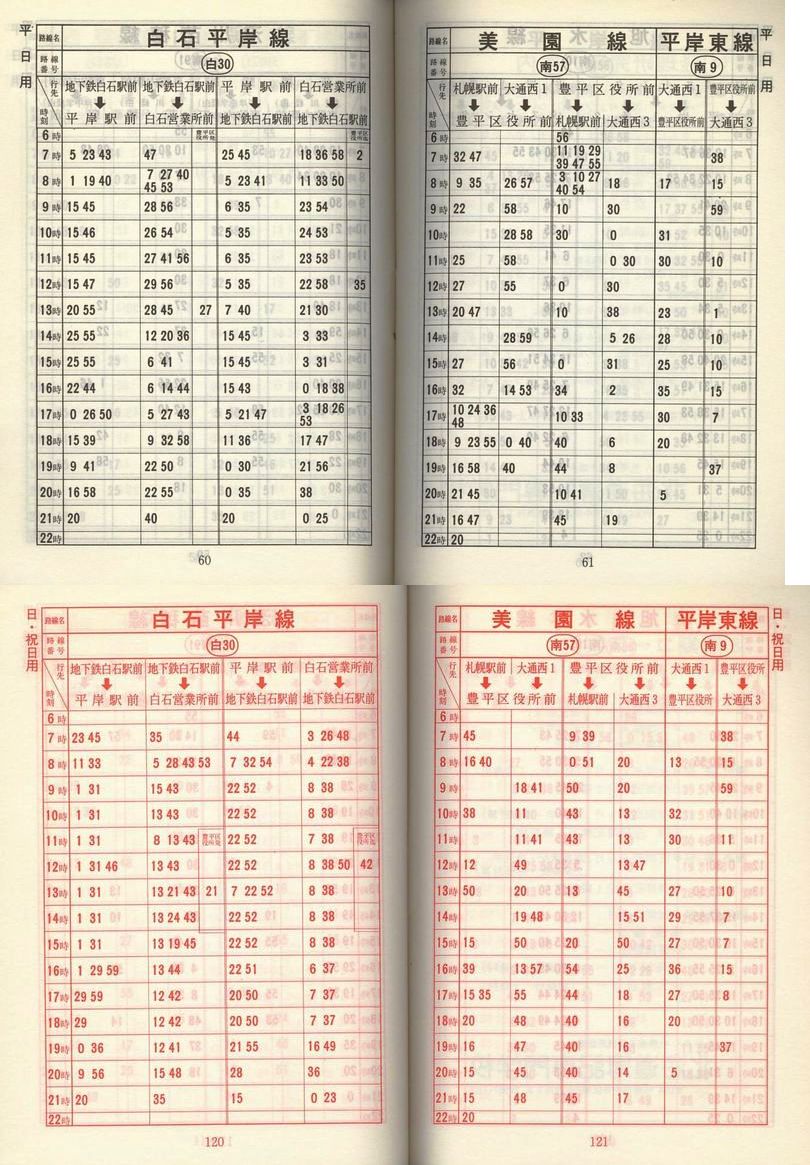 平日用
路線名 白石平岸線
路線番号 白30
行先 時刻 地下鉄白石駅前 地下鉄白石駅前 平岸駅前 白石営業所前
平岸駅前 白石営業所前 地下鉄白石駅前 地下鉄白石駅前
6時
7時 5 23 43 47 25 45 18 36 58 2
8時 1 19 40 7 27 40 45 53 5 23 41 11 33 50
9時 15 45 28 56 6 35 23 54
10時 15 46 26 54 5 35 24 53
11時 15 45 27 41 56 6 35 23 53
12時 15 47 29 56 5 35 22 58 35
13時 20 55 28 45 27 7 40 21 30
14時 25 55 12 20 36 15 45 3 33
15時 25 55 6 41 15 45 3 31
16時 22 44 6 14 44 15 43 0 18 38
17時 0 26 50 5 27 43 5 21 47 3 18 26 53
18時 15 39 9 32 58 11 36 17 47
19時 9 41 22 50 0 30 21 56
20時 16 58 22 55 0 35 38
21時 20 40 20 0 25
22時
60
平日用
路線名 美園線 平岸東線
路線番号 南57 南9
行先 時刻 札幌駅前 大通西1 豊平区役所前 大通西1 豊平区役所前
豊平区役所前 札幌駅前 大通西3 豊平区役所前 大通西3
6時 56
7時 32 47 11 19 29 39 47 55 38
8時 9 35 26 57 3 10 27 40 54 18 17 15
9時 22 58 10 30 59
10時 28 58 30 0 31
11時 25 58 0 30 30 10
12時 27 55 0 30
13時 20 47 10 38 23 1
14時 28 59 5 26 28 10
15時 27 56 0 31 25 10
16時 32 14 53 34 2 35 15
17時 10 24 36 48 10 33 30 7
18時 9 23 55 0 40 40 6 20
19時 16 58 40 44 8 37
20時 21 45 10 41 5
21時 16 47 45 19
22時 20
61
日・祝日用
路線名 白石平岸線
路線番号 白30
行先 時刻 地下鉄白石駅前 地下鉄白石駅前 平岸駅前 白石営業所前
平岸駅前 白石営業所前 地下鉄白石駅前 地下鉄白石駅前
6時
7時 23 45 35 44 3 26 48
8時 11 33 5 28 43 53 7 32 54 4 22 38
9時 1 31 15 43 22 52 8 38
10時 1 31 13 43 22 52 8 38
11時 1 31 8 13 43 22 52 7 38
12時 1 31 46 13 43 22 52 8 38 50 42
13時 1 31 13 21 43 21 7 22 52 8 38
14時 1 31 13 24 43 22 52 8 38
15時 1 31 13 19 45 22 52 8 38
16時 1 29 59 13 44 22 51 6 37
17時 29 59 12 42 20 50 7 37
18時 29 12 42 20 50 7 37
19時 0 36 12 41 21 55 16 49
20時 9 56 15 48 28 36
21時 20 35 15 0 23
22時
120
日・祝日用
路線名 美園線 平岸東線
路線番号 南57 南9
行先 時刻 札幌駅前 大通西1 豊平区役所前 大通西1 豊平区役所
豊平区役所前 札幌駅前 大通西3 豊平区役所 大通西3
6時
7時 45 9 39 38
8時 16 40 0 51 20 13 15
9時 18 41 50 20 59
10時 38 11 43 13 32
11時 11 41 43 13 30 11
12時 12 49 13 47
13時 50 20 13 45 27 10
14時 19 48 15 51 29 7
15時 15 50 20 50 27 7
16時 39 13 57 54 25 36 15
17時 15 35 55 44 18 27 8
18時 20 48 40 16 20
19時 16 47 40 16 37
20時 15 45 40 14 5
21時 15 48 45 17
22時 20
121